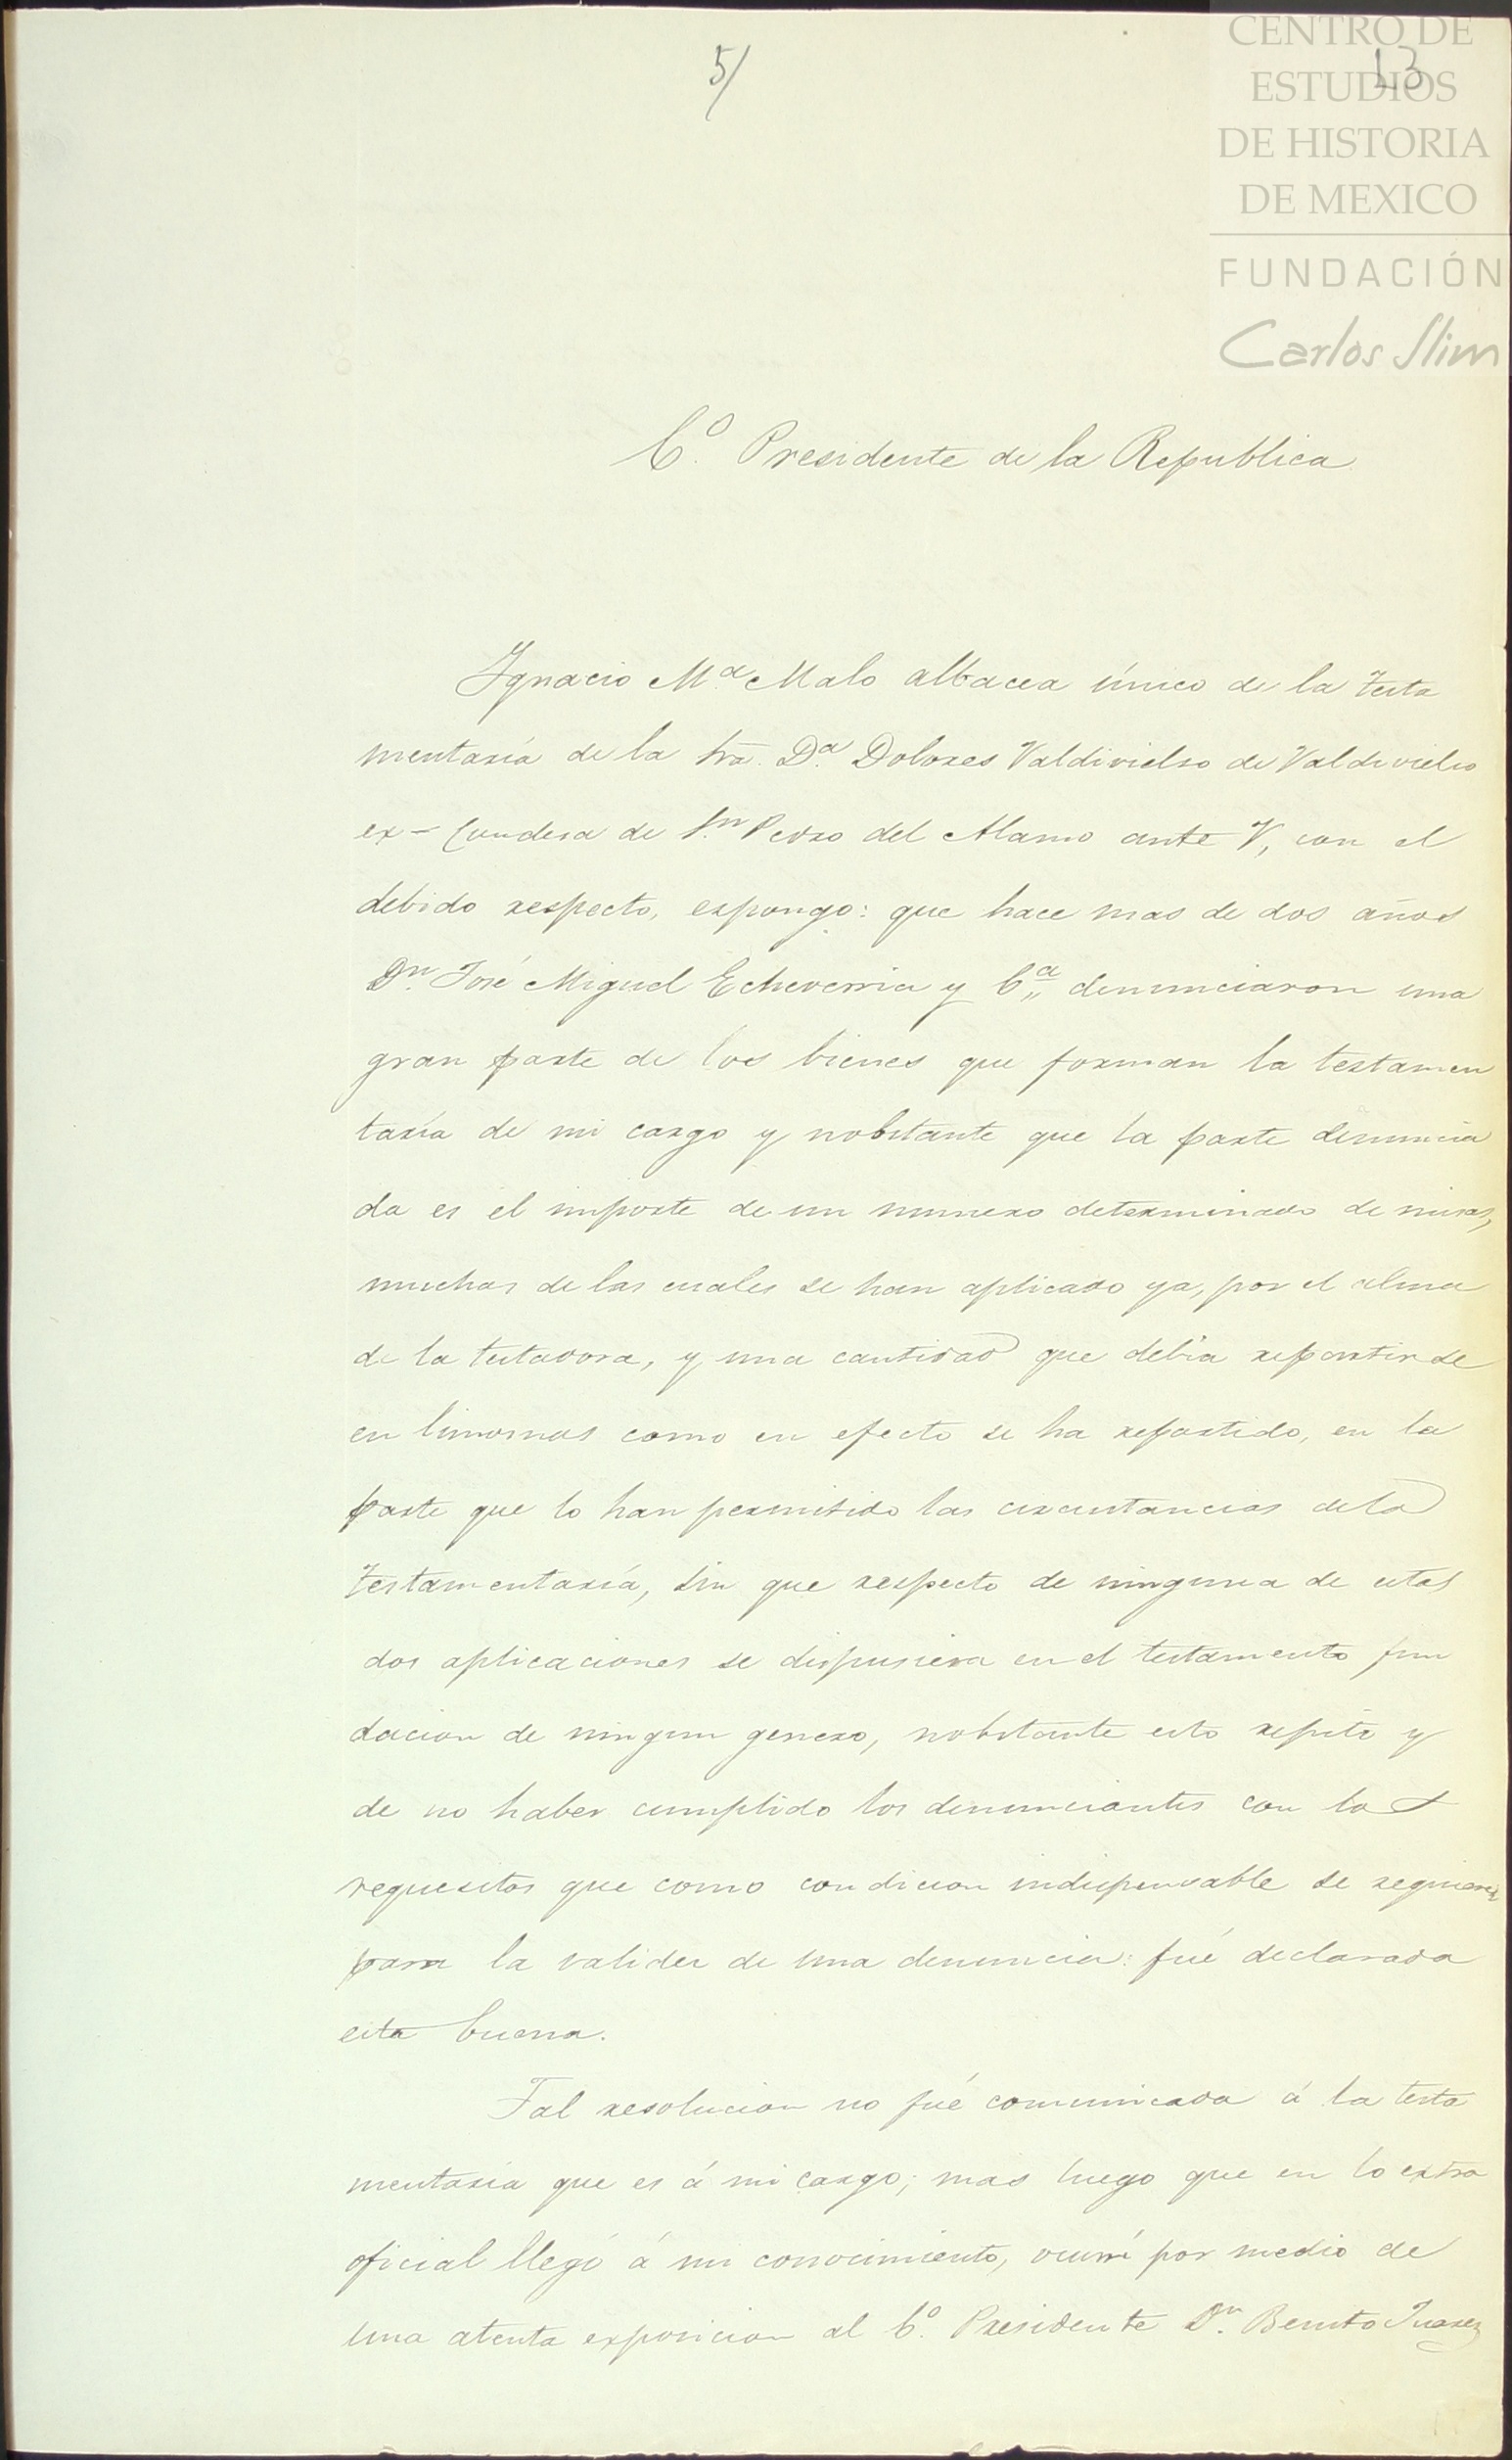 5/
13
CENTRO DE
ESTUDIOS
DE HISTORIA
DE MEXICO
FUNDACIÓN
Carlos Slim
C.º Presidente de la Republica
Ygnacio M.ª Malo albacea único de la testa
mentaria de la Sra. D.ª Dolores Valdivielso de Valdivielso
ex-Condesa de S.n Pedro del Alamo ante V, con el
debido respecto, espongo: que hace mas de dos años
D.n José Miguel Echeverria y C.ª denunciaron una
gran parte de los bienes que forman la testamen
taria de mi cargo y nobstante que la parte denuncia
da es el importe de un numero determinado de misas,
muchas de las cuales se han aplicado ya, por el alma
de la testadora, y una cantidad que debia repartirse
en limosnas como en efecto se ha repartido, en la
parte que lo han permitido las circustancias de la
testamentaría, sin que respecto de ninguna de estas
dos aplicaciones se dispusiera en el testamento fun
dacion de ningun genero, nobstante esto repito y
de no haber cumplido los denunciantes con los
requesitos que como condicion indispensable se requieren
para la validez de una denuncia: fué declarada
esta buena.
Tal resolucion no fué comunicada á la testa
mentaria que es á mi cargo; mas luego que en lo extra
oficial llegó á mi conocimiento, ocurrí por medio de
una atenta exposicion al C.º Presidente D.n Benito Juarez